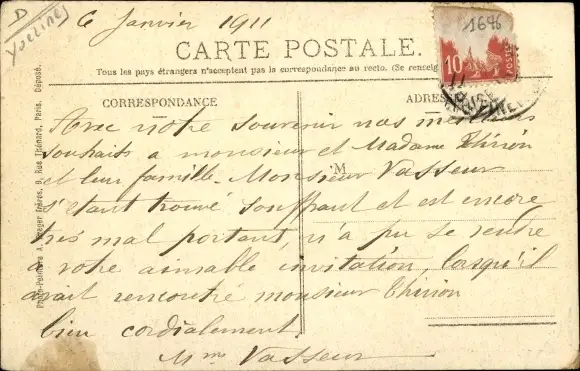 D
Yvelines
6 Janvier 1911
1696
CARTE POSTALE.
10
POSTES
Tous les pays étrangers n'acceptent pas la correspondance au recto. (Se renseig
CORRESPONDANCE
ADRES
M
Avec notre souvenir nos meilleurs
souhaits a monsieur et Madame Thirion
et leur famille. Monsieur Vasseur
s'étant trouvé souffrant et est encore
très mal portant, n'a pu se rendre
a votre aimable invitation, lorsqu'il
avait rencontré monsieur Thirion
bien cordialement
Mme Vasseur
Frères, 9, Rue Thénard, Paris. Déposé.